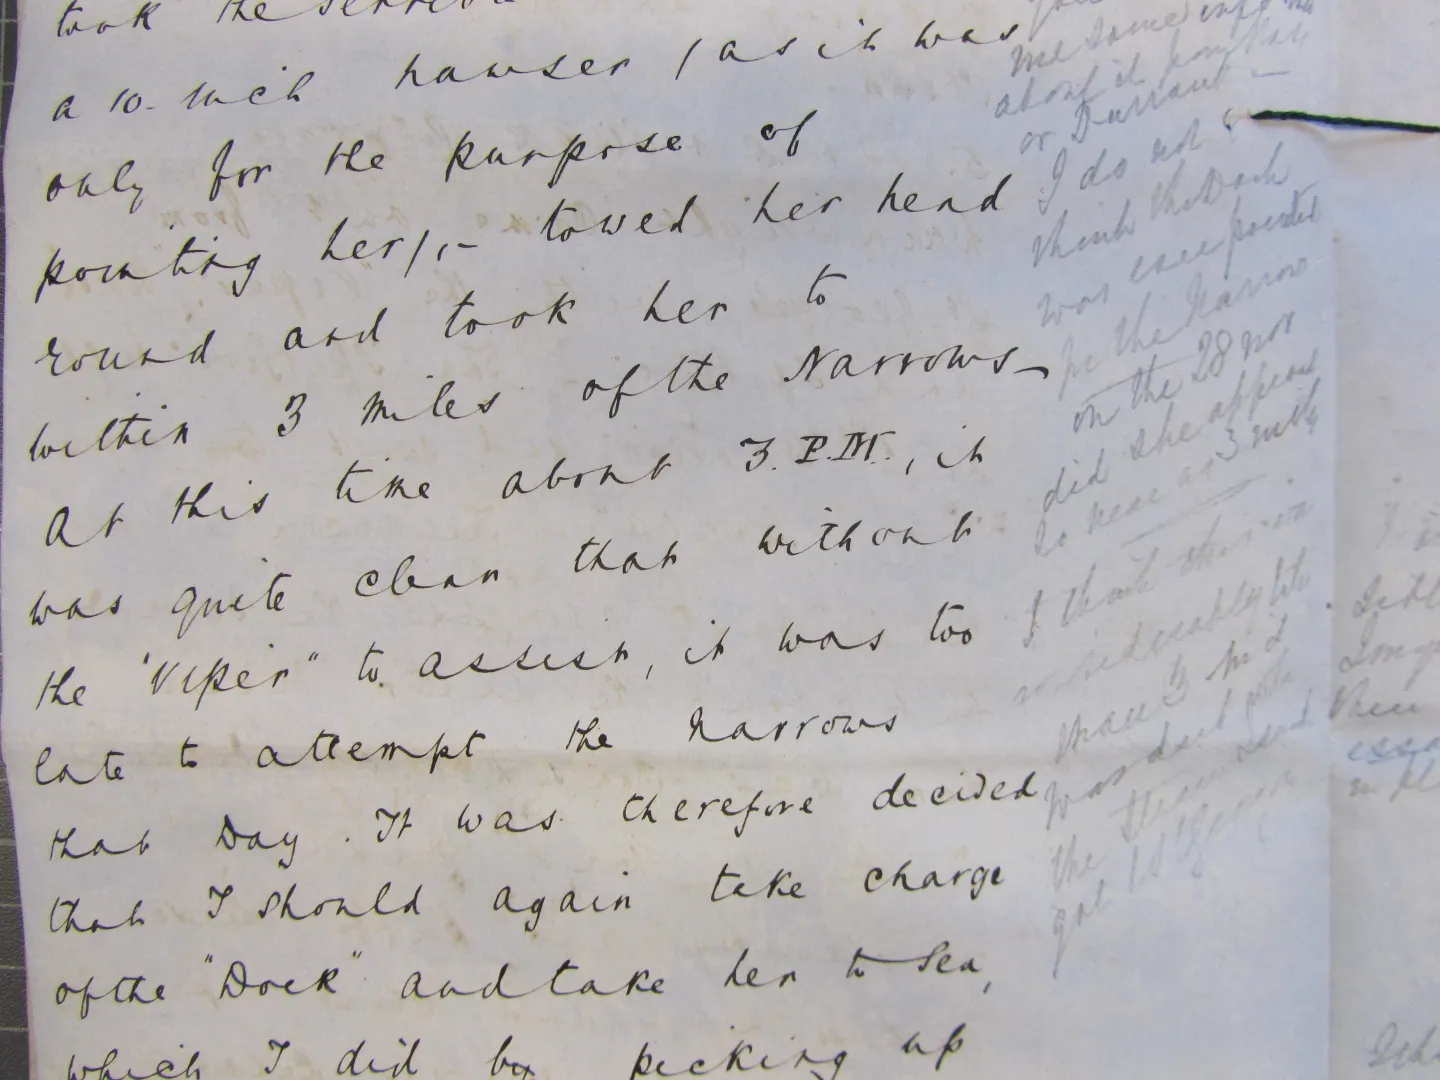 took the Terrible
a 10-inch hawser (as it was
only for the purpose of
pointing her),- towed her head
round and took her to
within 3 miles of the Narrows-
At this time about 3. P.M., it
was quite clear that without
the "Viper" to assist, it was too
late to attempt the narrows
that Day. It was therefore decided
that I should again take charge
of the "Dock" and take her to Sea,
which I did by picking up
me some
about it from
or Durrant -
I do not
think the Dock
was ever pointed
for the Narrows
on the 28 nor
did she appear
so near as 3 miles
I think this was
considerably
than 3 m &
was dark
the
got